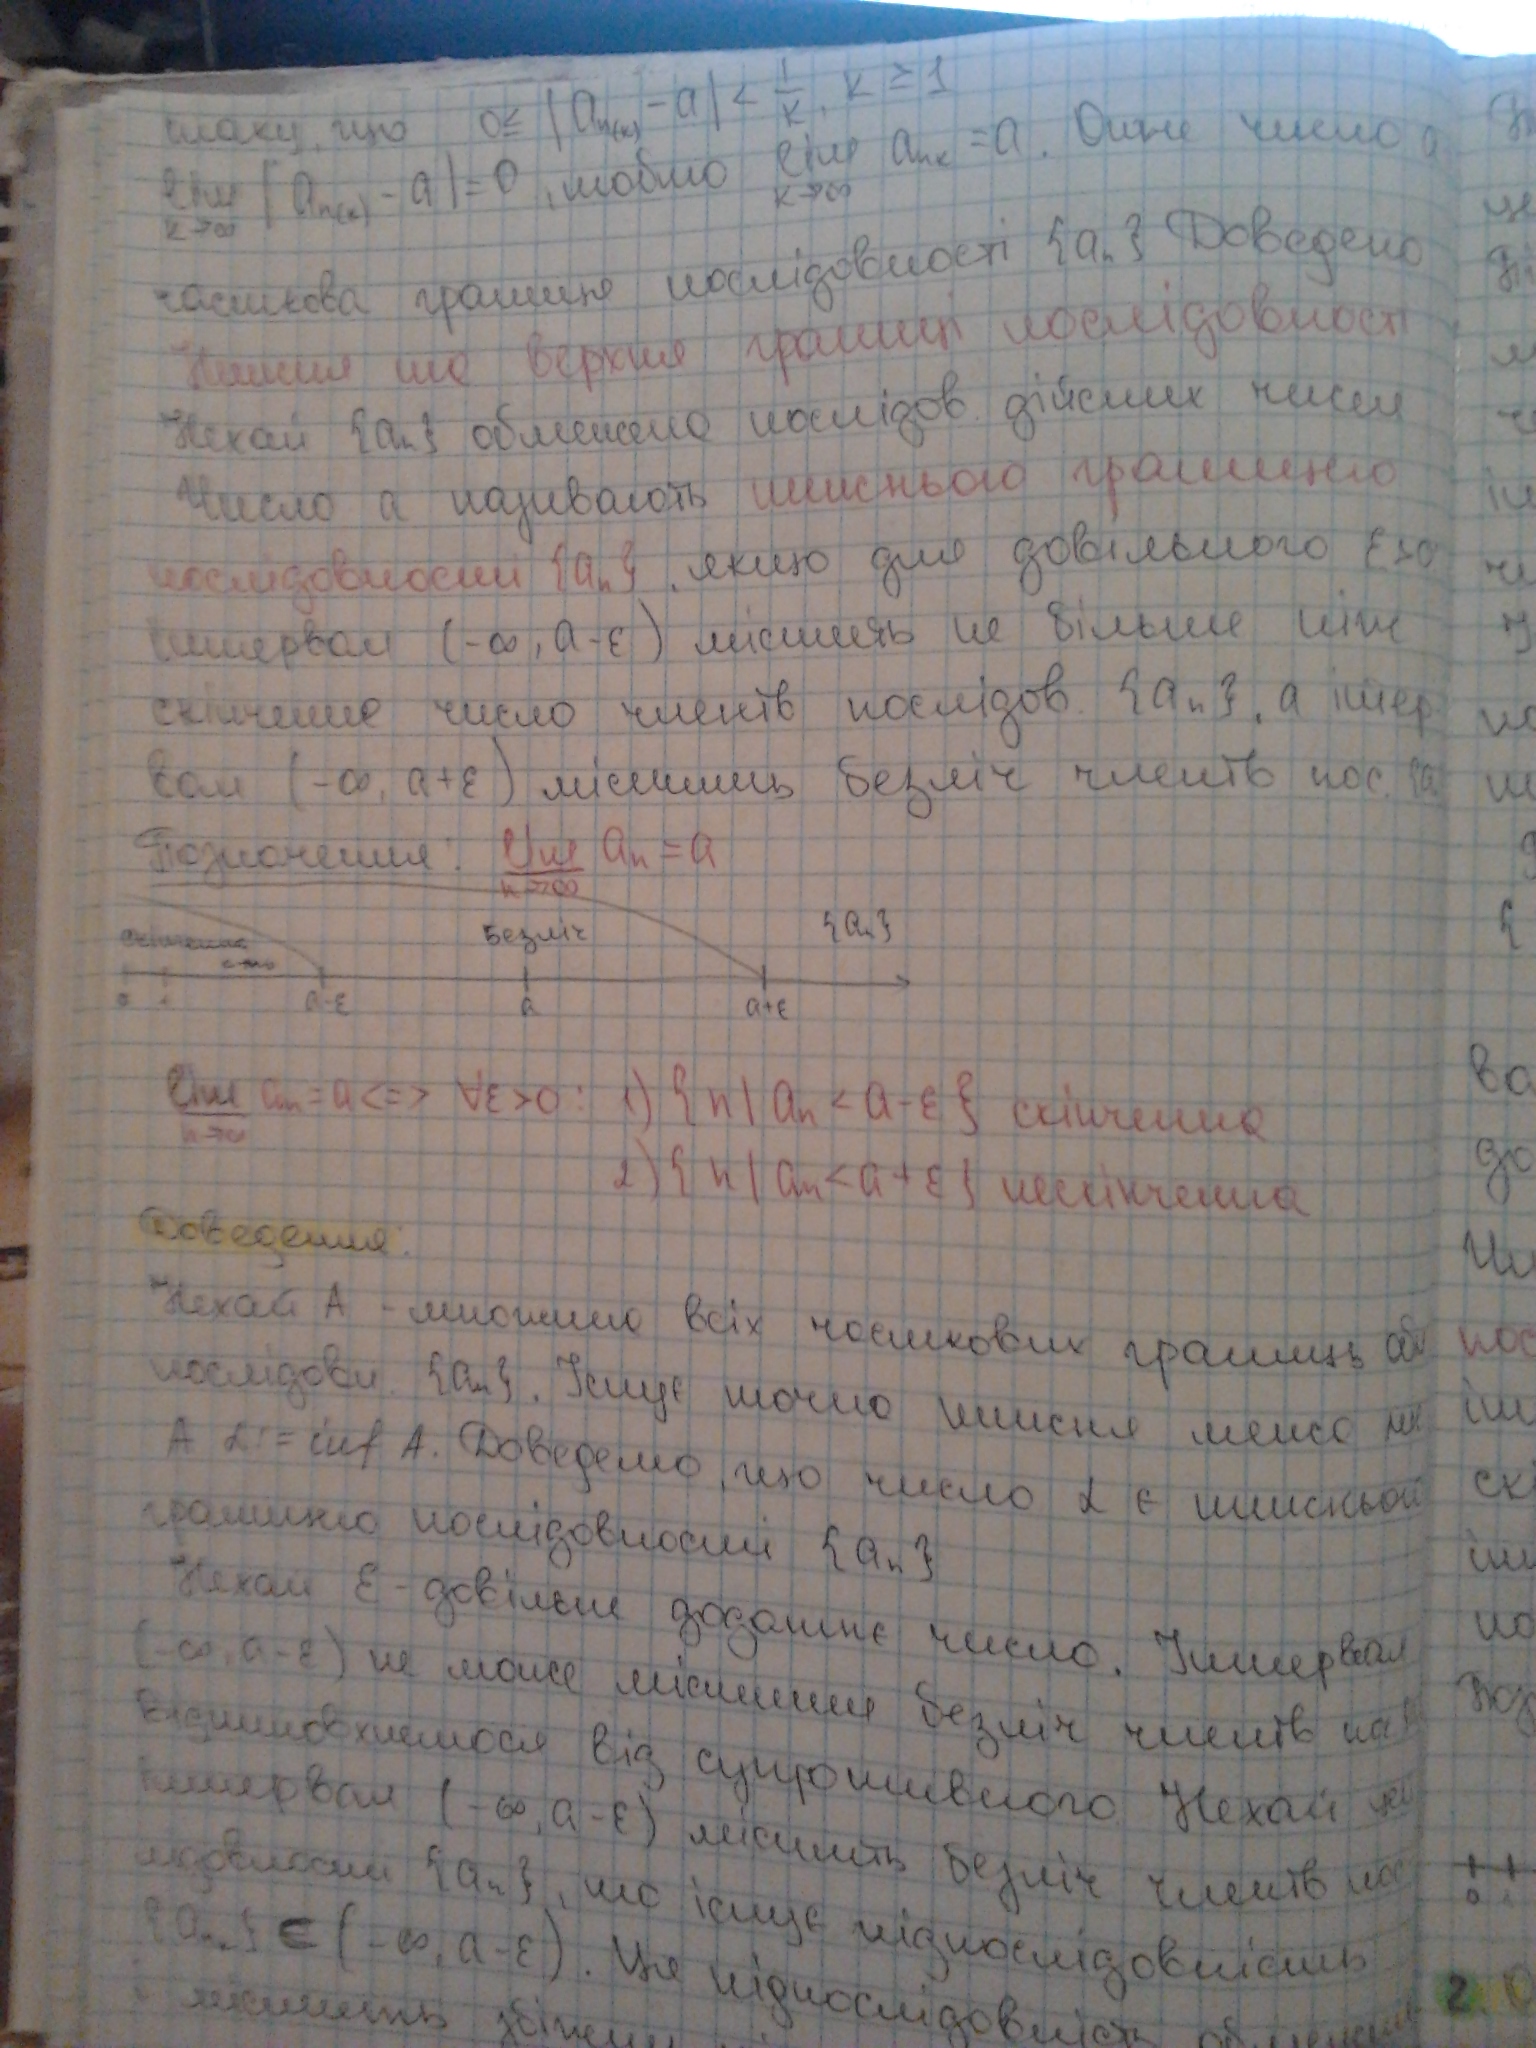 таку, що 0≤ |a_{n(k)} - a| < 1/k, k ≥ 1
lim_{k→∞} |a_{n(k)} - a| = 0, тобто lim_{k→∞} a_{nk} = a. Отже число a
часткова границя послідовності {a_n} Доведено
Нижня та верхня границі послідовності
Нехай {a_n} обмежена послідов. дійсних чисел
Число a називають нижньою границею
послідовності {a_n}, якщо для довільного ε>0
інтервал (-∞, a-ε) містить не більше ніж
скінченне число членів послідов. {a_n}, а інтер
вал (-∞, a+ε) містить безліч членів пос. {a
Позначення: lim_{n→∞} a_n = a
скінченне безліч {a_n}
с-то
0 a-ε a a+ε
lim_{n→∞} a_n = a <=> ∀ε>0: 1) {n | a_n < a-ε} скінченна
2) {n | a_n < a+ε} нескінченна
Доведення:
Нехай A - множина всіх часткових границь об
послідовн. {a_n}. Існує точна нижня межа мн
A α := inf A. Доведемо, що число α є нижньою
границею послідовності {a_n}
Нехай ε - довільне додатнє число. Інтервал
(-∞, a-ε) не може містити безліч членів
від супротивного. Нехай
інтервал (-∞, a-ε) містить безліч членів пос
лідовності {a_n}, то існує підпослідовність
{a_n} ∈ (-∞, a-ε). Ця підпослідовність обмежена
і містить збіжну
2.